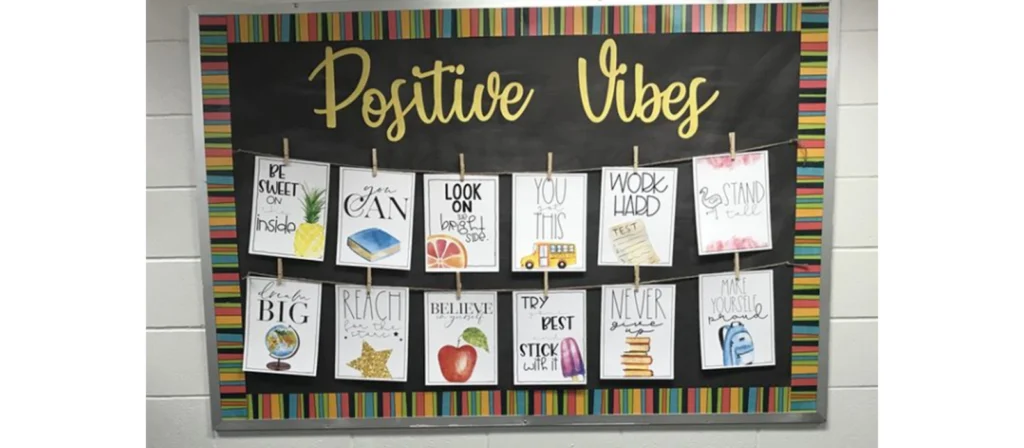 Positive Vibes
BE
SWEET
ON
inside
you
CAN
LOOK
ON
bright
side.
YOU
THIS
WORK
HARD
TEST
STAND
tall
dream
BIG
REACH
for the
stars
BELIEVE
in yourself
TRY
BEST
STICK
with it
NEVER
give
up
MAKE
YOURSELF
proud